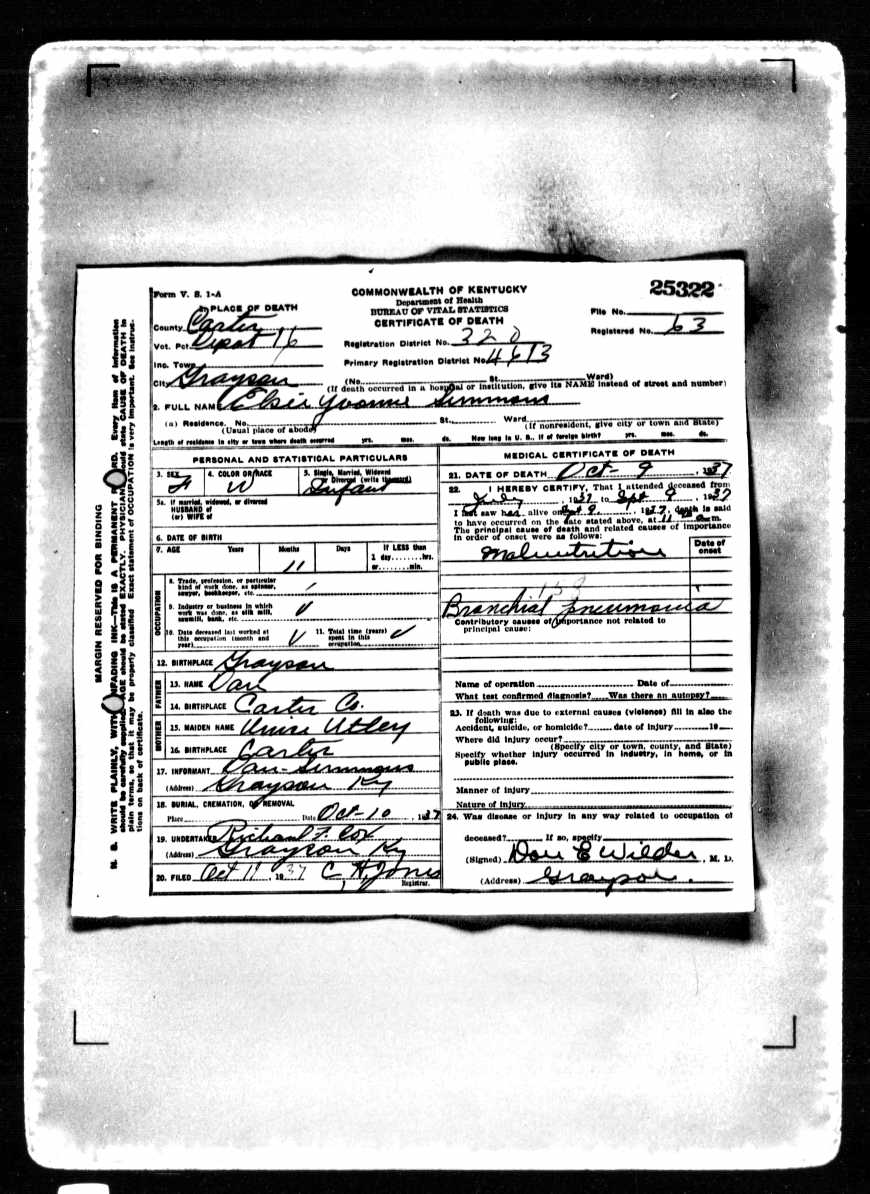 Form V. S. 1-A
COMMONWEALTH OF KENTUCKY
Department of Health
BUREAU OF VITAL STATISTICS
CERTIFICATE OF DEATH
25322
File No.
Registered No. 63
1. PLACE OF DEATH
County Carter
Vot. Pct. Depot 16
Registration District No. 320
Inc. Town
Primary Registration District No. 4613
City Grayson (No. St. Ward)
(If death occurred in a hospital or institution, give its NAME instead of street and number)
2. FULL NAME Elsie Yvonne Simmons
(a) Residence. No. St., Ward
(Usual place of abode) (If nonresident, give city or town and State)
Length of residence in city or town where death occurred yrs. mos. ds. How long in U. S., if of foreign birth? yrs. mos. ds.
PERSONAL AND STATISTICAL PARTICULARS
3. SEX F
4. COLOR OR RACE W
5. Single, Married, Widowed
or Divorced (write the word)
Infant
5a. If married, widowed, or divorced
HUSBAND of
(or) WIFE of
6. DATE OF BIRTH
7. AGE Years Months Days If LESS than
1 day........hrs.
or........min.
11
OCCUPATION
8. Trade, profession, or particular
kind of work done, as spinner,
sawyer, bookkeeper, etc.
9. Industry or business in which
work was done, as silk mill,
sawmill, bank, etc.
10. Date deceased last worked at
this occupation (month and
year)
11. Total time (years)
spent in this
occupation
12. BIRTHPLACE Grayson
FATHER
13. NAME Dan
14. BIRTHPLACE Carter Co.
MOTHER
15. MAIDEN NAME Utley
16. BIRTHPLACE Carter
17. INFORMANT Dan Simmons
(Address) Grayson Ky
18. BURIAL, CREMATION, OR REMOVAL
Place Date Oct-10, 1937
19. UNDERTAKER Richard F. Cox
(Address) Grayson Ky
20. FILED Oct 11, 1937 C. H. Jones
Registrar.
MEDICAL CERTIFICATE OF DEATH
21. DATE OF DEATH Oct- 9, 1937
22. I HEREBY CERTIFY, That I attended deceased from
July, 1937 to Sept 9, 1937
I last saw her alive on Sept 9, 1937, death is said
to have occurred on the date stated above, at 11 m.
The principal cause of death and related causes of importance
in order of onset were as follows:
Date of
onset
Malnutrition
Bronchial pneumonia
Contributory causes of importance not related to
principal cause:
Name of operation Date of
What test confirmed diagnosis? Was there an autopsy?
23. If death was due to external causes (violence) fill in also the
following:
Accident, suicide, or homicide? date of injury 19
Where did injury occur?
(Specify city or town, county, and State)
Specify whether injury occurred in industry, in home, or in
public place.
Manner of injury
Nature of injury
24. Was disease or injury in any way related to occupation of
deceased? If so, specify
(Signed) Don E Wilder, M. D.
(Address) Grayson.
MARGIN RESERVED FOR BINDING
N. B. WRITE PLAINLY, WITH UNFADING INK—This IS A PERMANENT RECORD. Every item of information
should be carefully supplied. AGE should be stated EXACTLY. PHYSICIANS should state CAUSE OF DEATH in
plain terms, so that it may be properly classified. Exact statement of OCCUPATION is very important. See instruc-
tions on back of certificate.